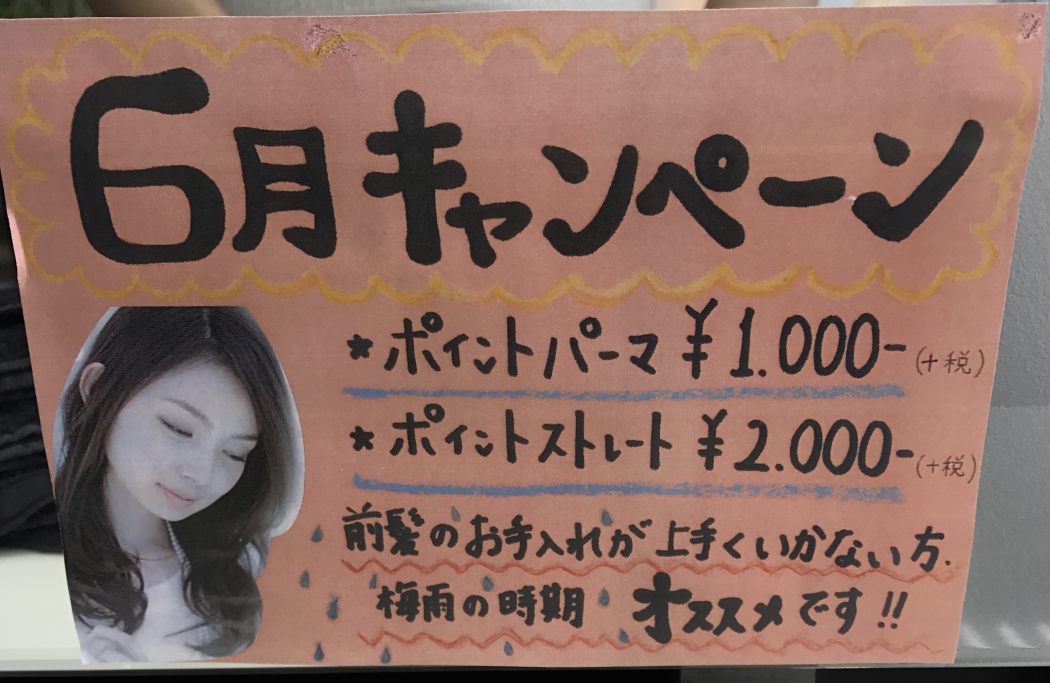 6月キャンペーン
★ポイントパーマ ¥1.000-(+税)
★ポイントストレート ¥2.000-(+税)
前髪のお手入れが上手くいかない方.
梅雨の時期 オススメです!!